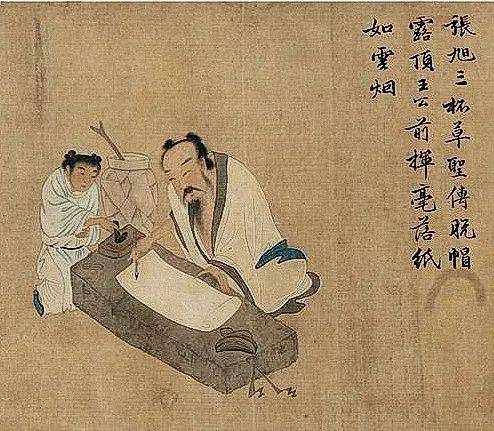 張旭三杯草聖傳脫帽
露頂王公前揮毫落紙
如雲烟